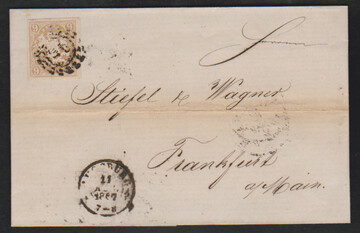 Stiefel & Wagner
Frankfurt
a/Main.
21
1867
7-8